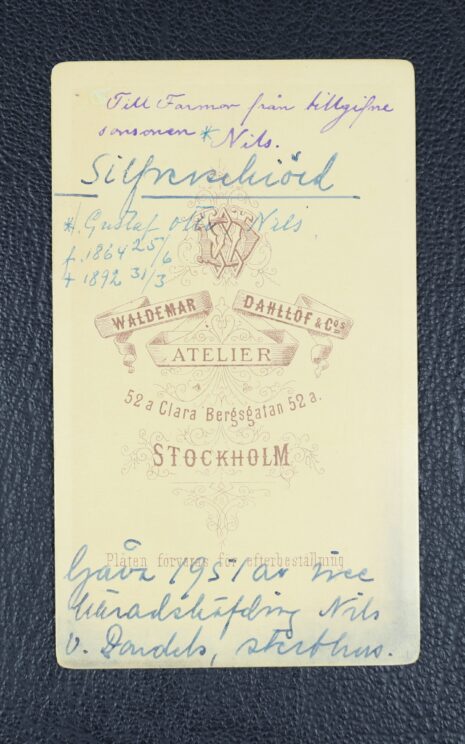 Till Farmor från tillgifne
sonsonen * Nils.
Silfverschiöld
*/ Gustaf Otto Nils
f. 1864 25/6
+ 1892 31/3
WALDEMAR DAHLLÖF & Cos
ATELIER
52 a Clara Bergsgatan 52 a.
STOCKHOLM
Plåten förvaras för efterbeställning
Gåva 1951 av vice
häradshöfding Nils
v. Dardels, sterbhus.